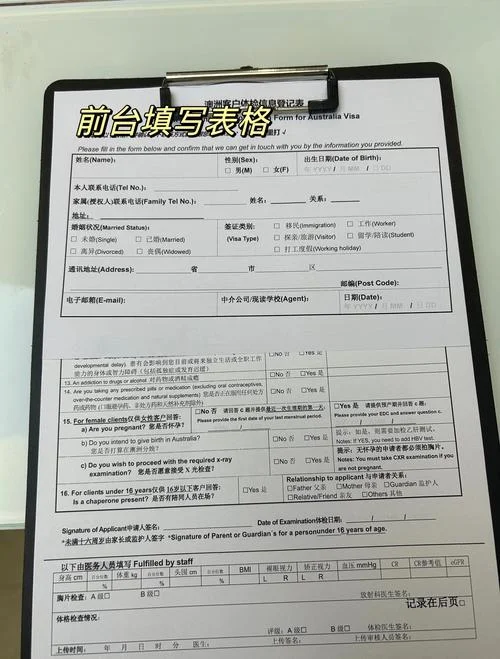 澳洲客户体检信息登记表
前台填写表格
Form for Australia Visa
Please fill in the form below and confirm that we can get in touch with you by the information you provided.
姓名(Name): 性别(Sex): 出生日期(Date of Birth):
□ 男(M) □ 女(F) 年 YYYY / 月 MM / 日 DD
本人联系电话(Tel No.):
家属(授权人)联系电话(Family Tel No.) 姓名: 关系:
地址:
婚姻状况(Married Status): 签证类别: □ 移民(Immigration) □ 工作(Worker)
□ 未婚(Single) □ 已婚(Married) (Visa Type) □ 探亲/旅游(Visitor) □ 留学/陪读(Student)
□ 离异(Divorced) □ 丧偶(Widowed) □ 打工度假(Working holiday)
通讯地址(Address): 省 市 区
邮编(Post Code):
电子邮箱(E-mail): 中介公司/现读学校(Agent): 日期(Date):
年 YYYY / 月 MM / 日 DD
developmental delay). 患有会影响到您目前或将来独立生活或全职工作 □No 否 □Yes 是
能力的身体或智力障碍（包括孤独症或发育迟缓）
13. An addiction to drugs or alcohol 对药物或酒精成瘾
14. Are you taking any prescribed pills or medication (excluding oral contraceptives, □No 否 □Yes 是
over-the-counter medication and natural supplements) 您是否正在服用任何处方
药或药物（口服避孕药、非处方药和天然补充剂除外）
15. For female clients仅供女性客户回答: □No 否 请回答 c 题并提供最近一次生理期的第一天, □Yes 是 请提供预产期并回答 c 题.
a) Are you pregnant? 您是否怀孕? Please provide the first date of your last menstrual period. Please provide your EDC and answer question c.
b) Do you intend to give birth in Australia? □No 否 □Yes 是 提示，如是，则需要加检乙肝测试.
您是否打算在澳洲分娩? Notes: If YES, you need to add HBV test.
c) Do you wish to proceed with the required x-ray □No 否 □Yes 是 提示：无怀孕的申请者都必须拍胸片。
examination? 您是否愿意接受 X 光检查? Notes: You must take CXR examination if you
are not pregnant.
16. For clients under 16 years仅供 16岁以下客户回答: □Yes 是 Relationship to applicant 与申请者关系:
Is a chaperone present? 是否有陪同人员在场? □Father 父亲 □Mother 母亲 □Guardian 监护人
□Relative/Friend 亲友 □Others 其他
Signature of Applicant申请人签名: Date of Examination体检日期: / /
*未满十六周岁由家长或监护人签字 *Signature of Parent or Guardian's for a personunder 16 years of age.
以下由医务人员填写 Fulfilled by staff
身高 cm 百分位数 体重 kg 百分位数 头围 cm 百分位数 BMI 裸眼视力 矫正视力 血压 mmHg CR CR参考值 eGPR
% % % L R L R
胸片检查: A 级□ B 级□ 放射科医生签名:
体格检查情况: 记录在后页□
评级: A 级□ B 级□ 体检医生签名:
上传时间: 年 月 日 时 分 医生: 上传审核人员签名: